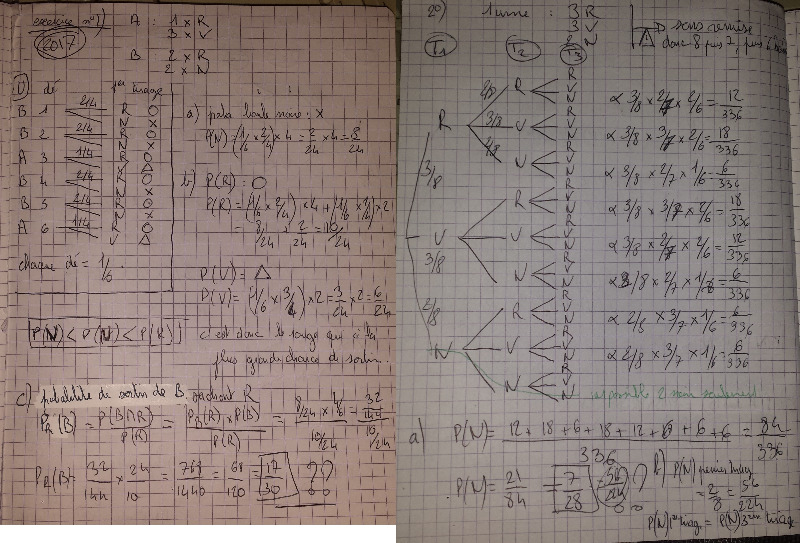 exercice n°1) A : 1 x R
3 x V
2017
B : 2 x R
2 x N
1) dé 1er tirage
B 1 2/4 R O
N x
B 2 2/4 R O
N x
A 3 1/4 R O
V △
B 4 2/4 R O
N x
B 5 2/4 R O
N x
A 6 1/4 R O
V △
chaque dé = 1/6
a) boule noire : x
P(N) = (1/6 x 2/4) x 4 = 2/24 x 4 = 8/24
b) P(R) : O
P(R) = (1/6 x 2/4) x 4 + (1/6 x 1/4) x 2
= 8/24 + 2/24 = 10/24
P(V) = △
P(V) = (1/6 x 3/4) x 2 = 3/24 x 2 = 6/24
P(V) < P(N) < P(R)
c'est donc le rouge qui a la
plus grande chance de sortir.
c) probabilité de sortir de B sachant R
P_R(B) = P(B∩R)/P(R) = P_B(R) x P(B)/P(R) = 8/24 x 4/6 / 10/24 = 32/144 / 10/24
P_R(B) = 32/144 x 24/10 = 768/1440 = 68/120 = 17/30 ??
2°) 1 urne : 3 R
3 V
2 N
⚠ sans remise
donc 8 puis 7, puis 6
T1 T2 T3
R 3/8
R 2/7 R V N
V 3/7 R V N
N 2/7 R V N
V 3/8
R R V N
V R V N
N R V N
N 2/8
R R V N
V R V N
N R V N
α 3/8 x 2/7 x 2/6 = 12/336
α 3/8 x 3/7 x 2/6 = 18/336
α 3/8 x 2/7 x 1/6 = 6/336
α 3/8 x 3/7 x 2/6 = 18/336
α 3/8 x 2/7 x 2/6 = 12/336
α 3/8 x 2/7 x 1/6 = 6/336
α 2/8 x 3/7 x 1/6 = 6/336
α 2/8 x 3/7 x 1/6 = 6/336
impossible 2 noirs seulement
a) P(N) = 12 + 18 + 6 + 18 + 12 + 6 + 6 + 6 / 336 = 84/336
P(N) = 21/84 = 7/28 = 56/224 ??
b) P(N) premier tirage
= 2/8 = 56/224
P(N) 1er tirage = P(N) 3ème tirage